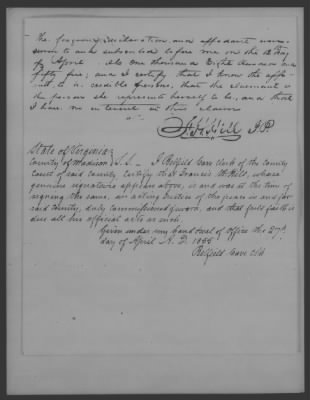 The foregoing Declaration and affidavit were
sworn to and subscribed before me on the day
of April one thousand Eight hundred and
fifty five; and I certify that I know the affi-
ant to be credible persons, that the claimant is
the person she represents herself to be, and that
I have no interest in this claim
Hill J.P.
State of Virginia
County of Madison S.S. — I Belfield Cave Clerk of the County
Court of said County certify that Francis Hill, whose
genuine signature appears above, is and was at the time of
signing the same, an acting Justice of the peace in and for
said County, duly commissioned & sworn, and that full faith is
due all his official acts as such.
Given under my hand & seal of office this 27th
day of April A. D. 1855
Belfield Cave Clk